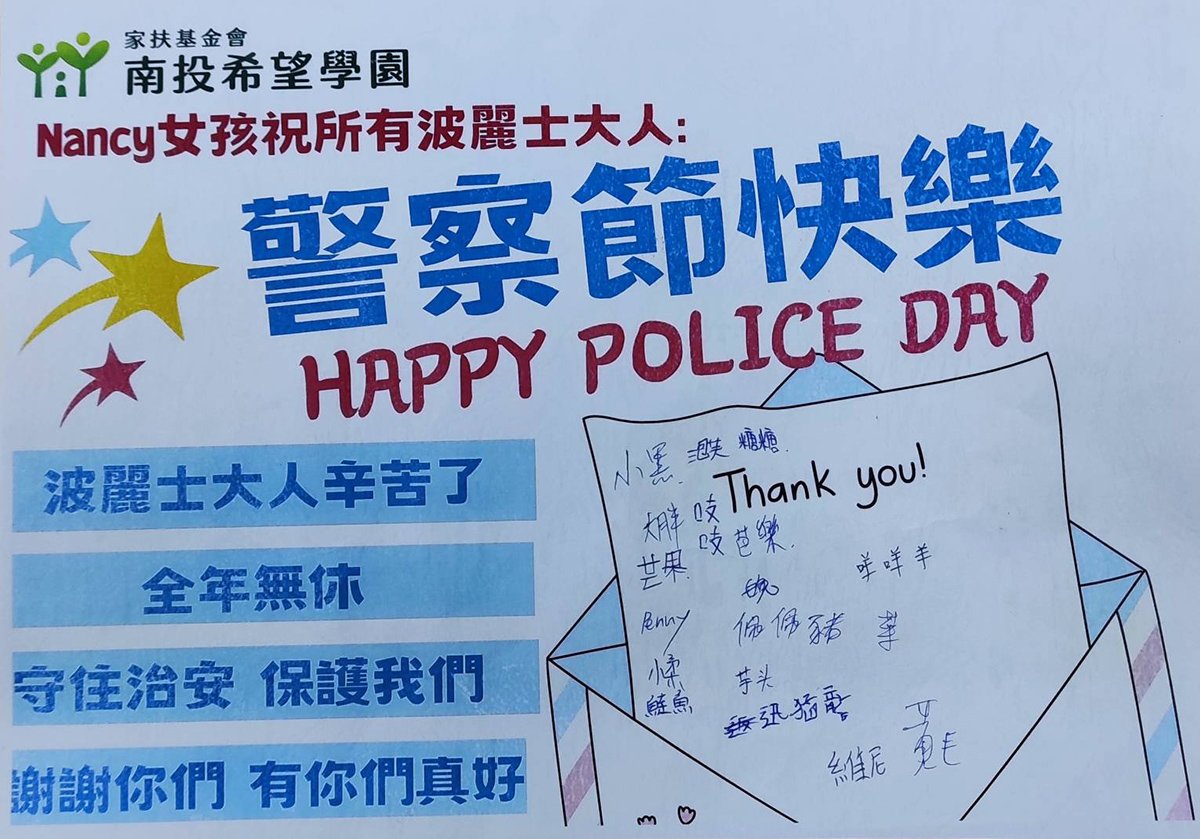 家扶基金會
南投希望學園
Nancy女孩祝所有波麗士大人:
警察節快樂
HAPPY POLICE DAY
波麗士大人辛苦了
全年無休
守住治安 保護我們
謝謝你們 有你們真好
小黑 糖糖
Thank you!
大胖 吱
芒果 吱芭樂
咩咩羊
Penny 佩佩豬
小柔 芋头
鰱魚 迅猛龍
維尼